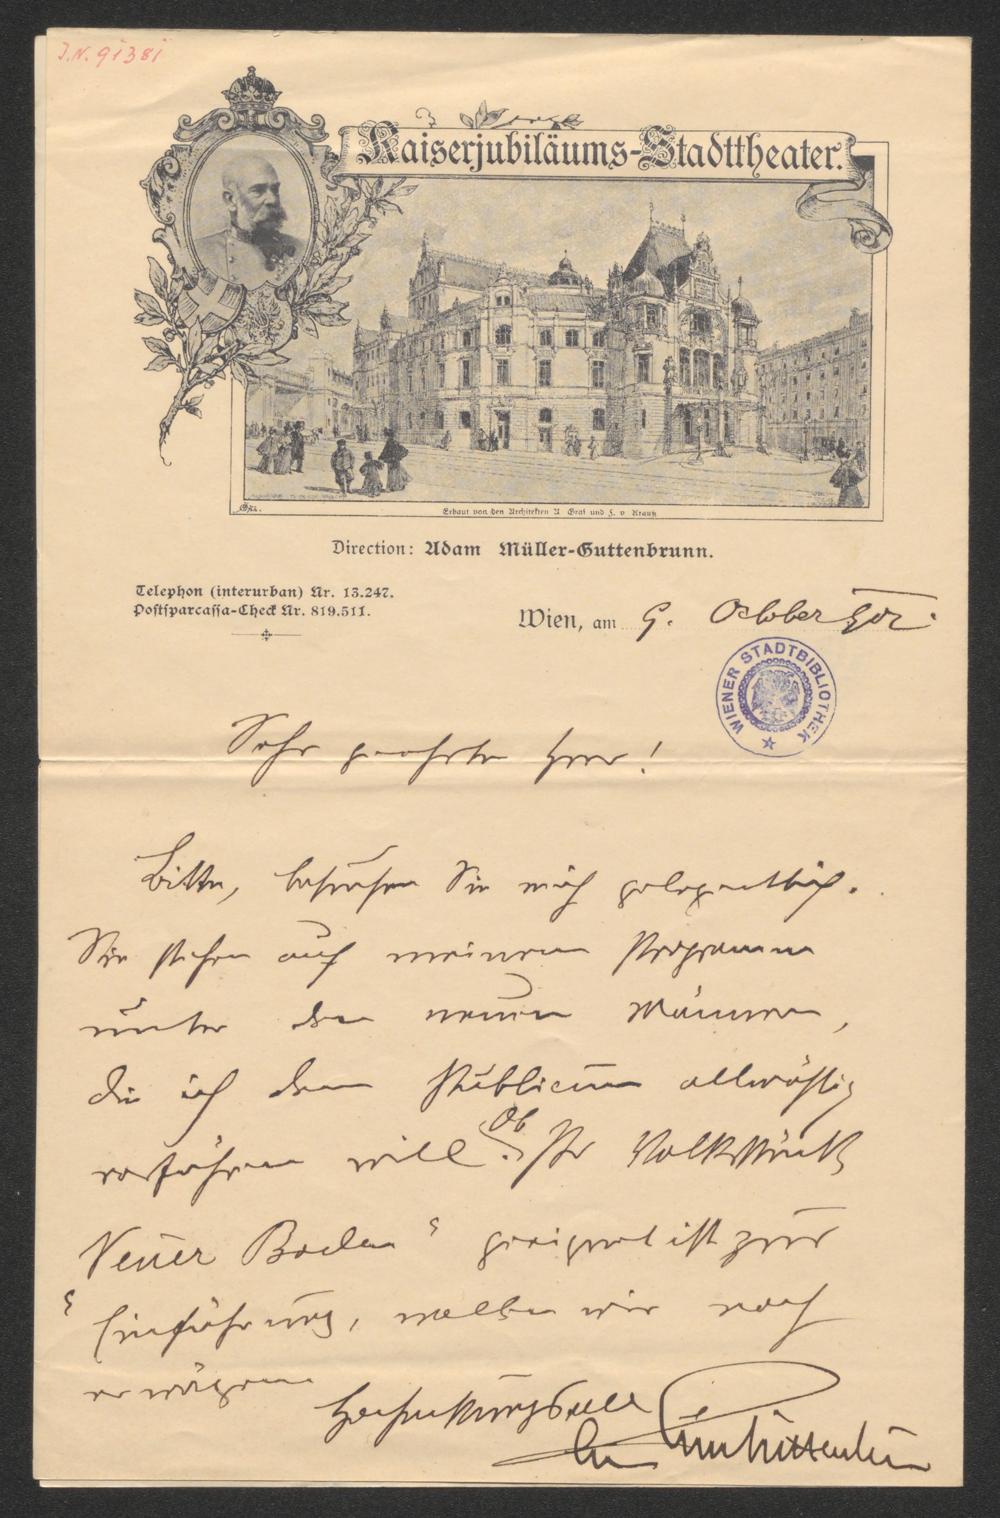 J.N. 91381
Kaiserjubiläums-Stadttheater.
Erbaut von den Architekten A. Graf und F. v. Krauß
Direction: Adam Müller-Guttenbrunn.
Telephon (interurban) Nr. 13.247.
Postsparcassa-Check Nr. 819.511.
Wien, am 9. October 902.
WIENER STADTBIBLIOTHEK
Sehr geehrter Herr!
Bitte, besuchen Sie mich gelegentlich.
Sie stehen auf meinem Programm
unter den neuen Männern,
die ich dem Publicum allmählig
vorführen will. Ob Ihr Volksstück
„Neuer Boden“ geeignet ist zur
Einführung, wollen wir noch
erwägen.
Hochachtungsvoll
Müller-Guttenbrunn